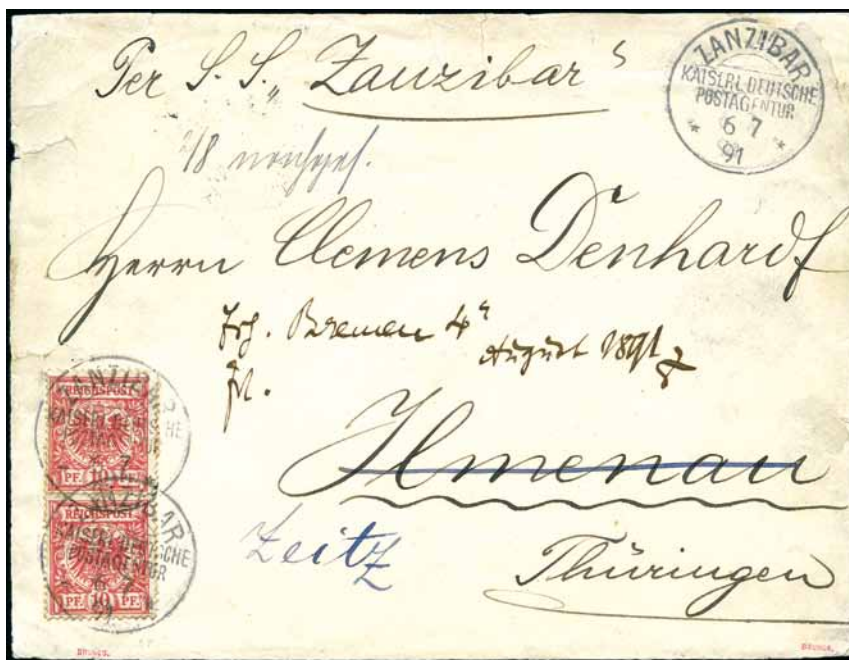 Per S. S. „Zanzibar“
ZANZIBAR
KAISERL. DEUTSCHE
POSTAGENTUR
6 7
91
1/8 nachges.
Herrn Clemens Denhardt
Bremen 4“
August 1891
Ilmenau
Zeitz
Thüringen
ZANZIBAR
KAISERL. DEUTSCHE
REICHSPOST
PF. 10 PF.
ZANZIBAR
KAISERL. DEUTSCHE
POSTAGENTUR
6 7
91
REICHSPOST
PF. 10 PF.
BRUNOS.
BRUNOS.